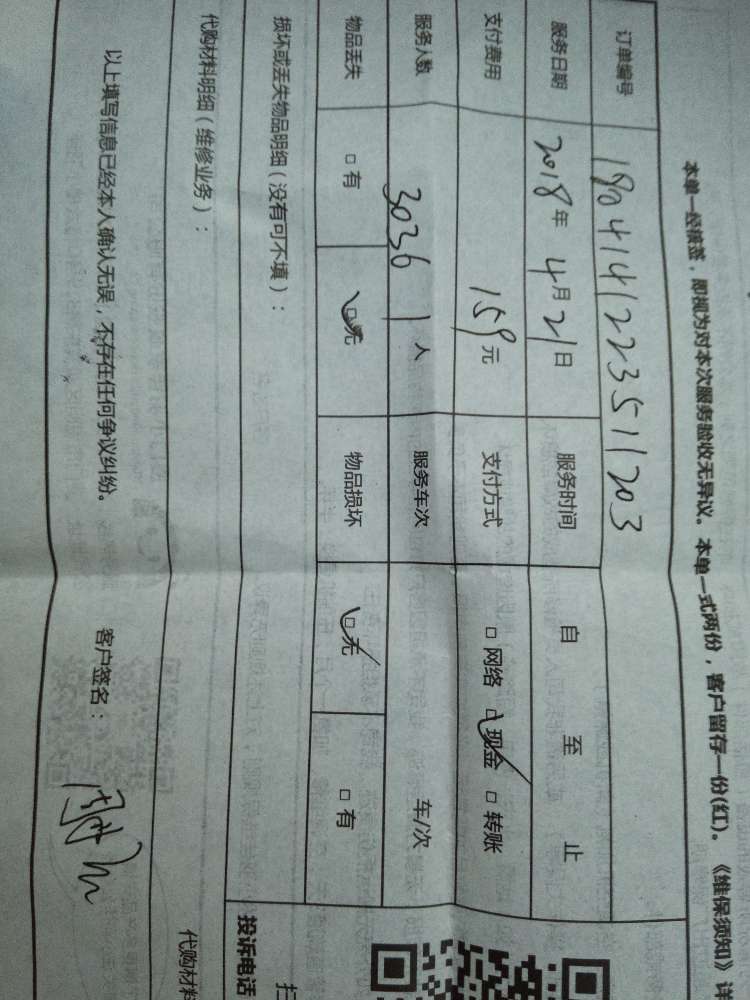 本单一经横签，即视为对本次服务验收无异议。本单一式两份，客户留存一份(红)。《维保须知》详
订单编号 180414122351203
服务日期 2018年 4月 21日 服务时间 自 至 止
支付费用 159元 支付方式 □ 网络 □ 现金 □ 转账
服务人数 3036 1 人 服务车次 车/次
物品丢失 □ 有 □ 无 物品损坏 □ 无 □ 有
损坏或丢失物品明细（没有可不填）：
代购材料明细（维修业务）：
以上填写信息已经本人确认无误，不存在任何争议纠纷。 客户签名：
投诉电话
扫
代购材料